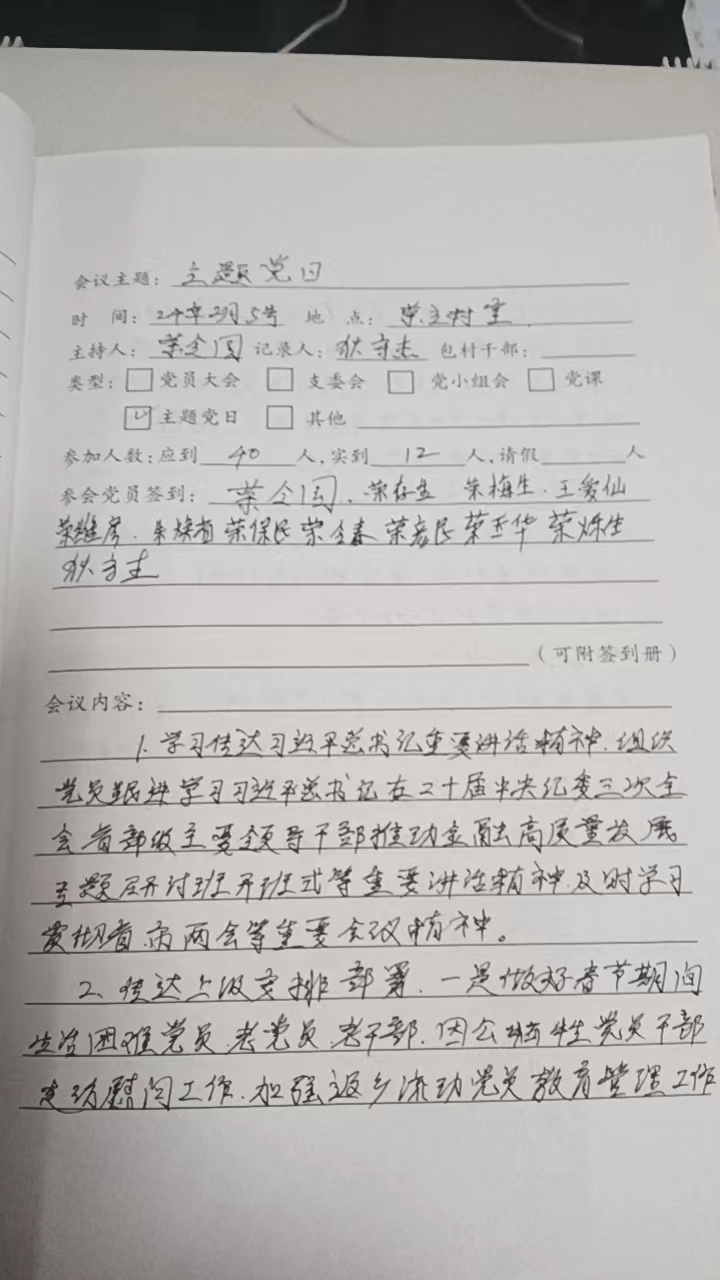 会议主题：主题党日
时 间：24年2月5号 地 点：荣主村室
主持人：荣全国 记录人：狄守杰 包村干部：
类型：党员大会 支委会 党小组会 党课
主题党日 其他
参加人数：应到 40 人，实到 12 人，请假 人
参会党员签到：荣全国、荣存 荣梅生、王爱仙
荣维房、荣焕 荣保民 荣全森 荣彦民 荣玉华 荣烁生
狄守杰
（可附签到册）
会议内容：
1、学习传达习近平总书记重要讲话精神、组织
党员跟进学习习近平总书记在二十届中央纪委三次全
会省部级主要领导干部推动金融高质量发展
专题研讨班开班式等重要讲话精神及时学习
贯彻省、市两会等重要会议精神。
2、传达上级安排部署、一是做好春节期间
生活困难党员、老党员、老干部、因公牺牲党员干部
走访慰问工作、加强返乡流动党员教育管理工作